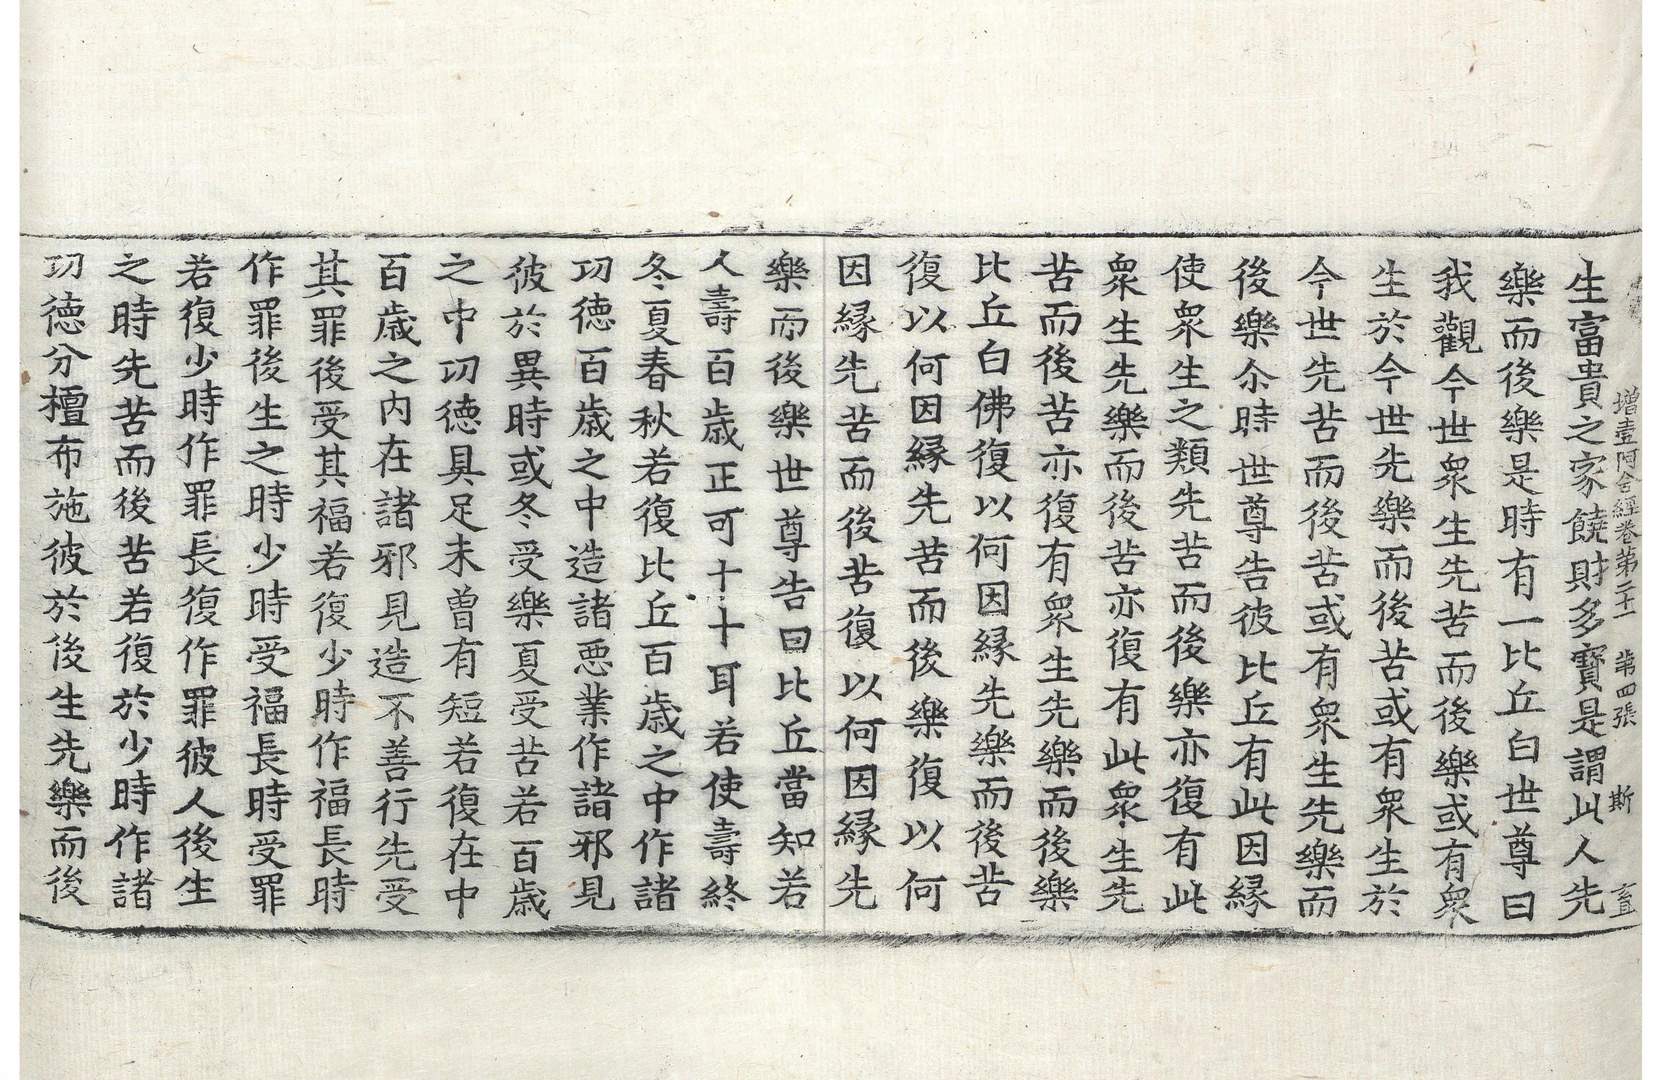 增壹阿含經卷第二十一　第四張　斯
生富貴之家饒財多寶是謂此人先
樂而後樂是時有一比丘白世尊曰
我觀今世衆生先苦而後樂或有衆
生於今世先樂而後苦或有衆生於
今世先苦而後苦或有衆生先樂而
後樂尒時世尊告彼比丘有此因緣
使衆生之類先苦而後樂亦復有此
衆生先樂而後苦亦復有此衆生先
苦而後苦亦復有衆生先樂而後樂
比丘白佛復以何因緣先樂而後苦
復以何因緣先苦而後樂復以何
因緣先苦而後苦復以何因緣先
樂而後樂世尊告曰比丘當知若
人壽百歲正可十十耳若使壽終
冬夏春秋若復比丘百歲之中作諸
功德百歲之中造諸惡業作諸邪見
彼於異時或冬受樂夏受苦若百歲
之中功德具足未曾有短若復在中
百歲之內在諸邪見造不善行先受
其罪後受其福若復少時作福長時
作罪後生之時少時受福長時受罪
若復少時作罪長復作罪彼人後生
之時先苦而後苦若復於少時作諸
功德分檀布施彼於後生先樂而後